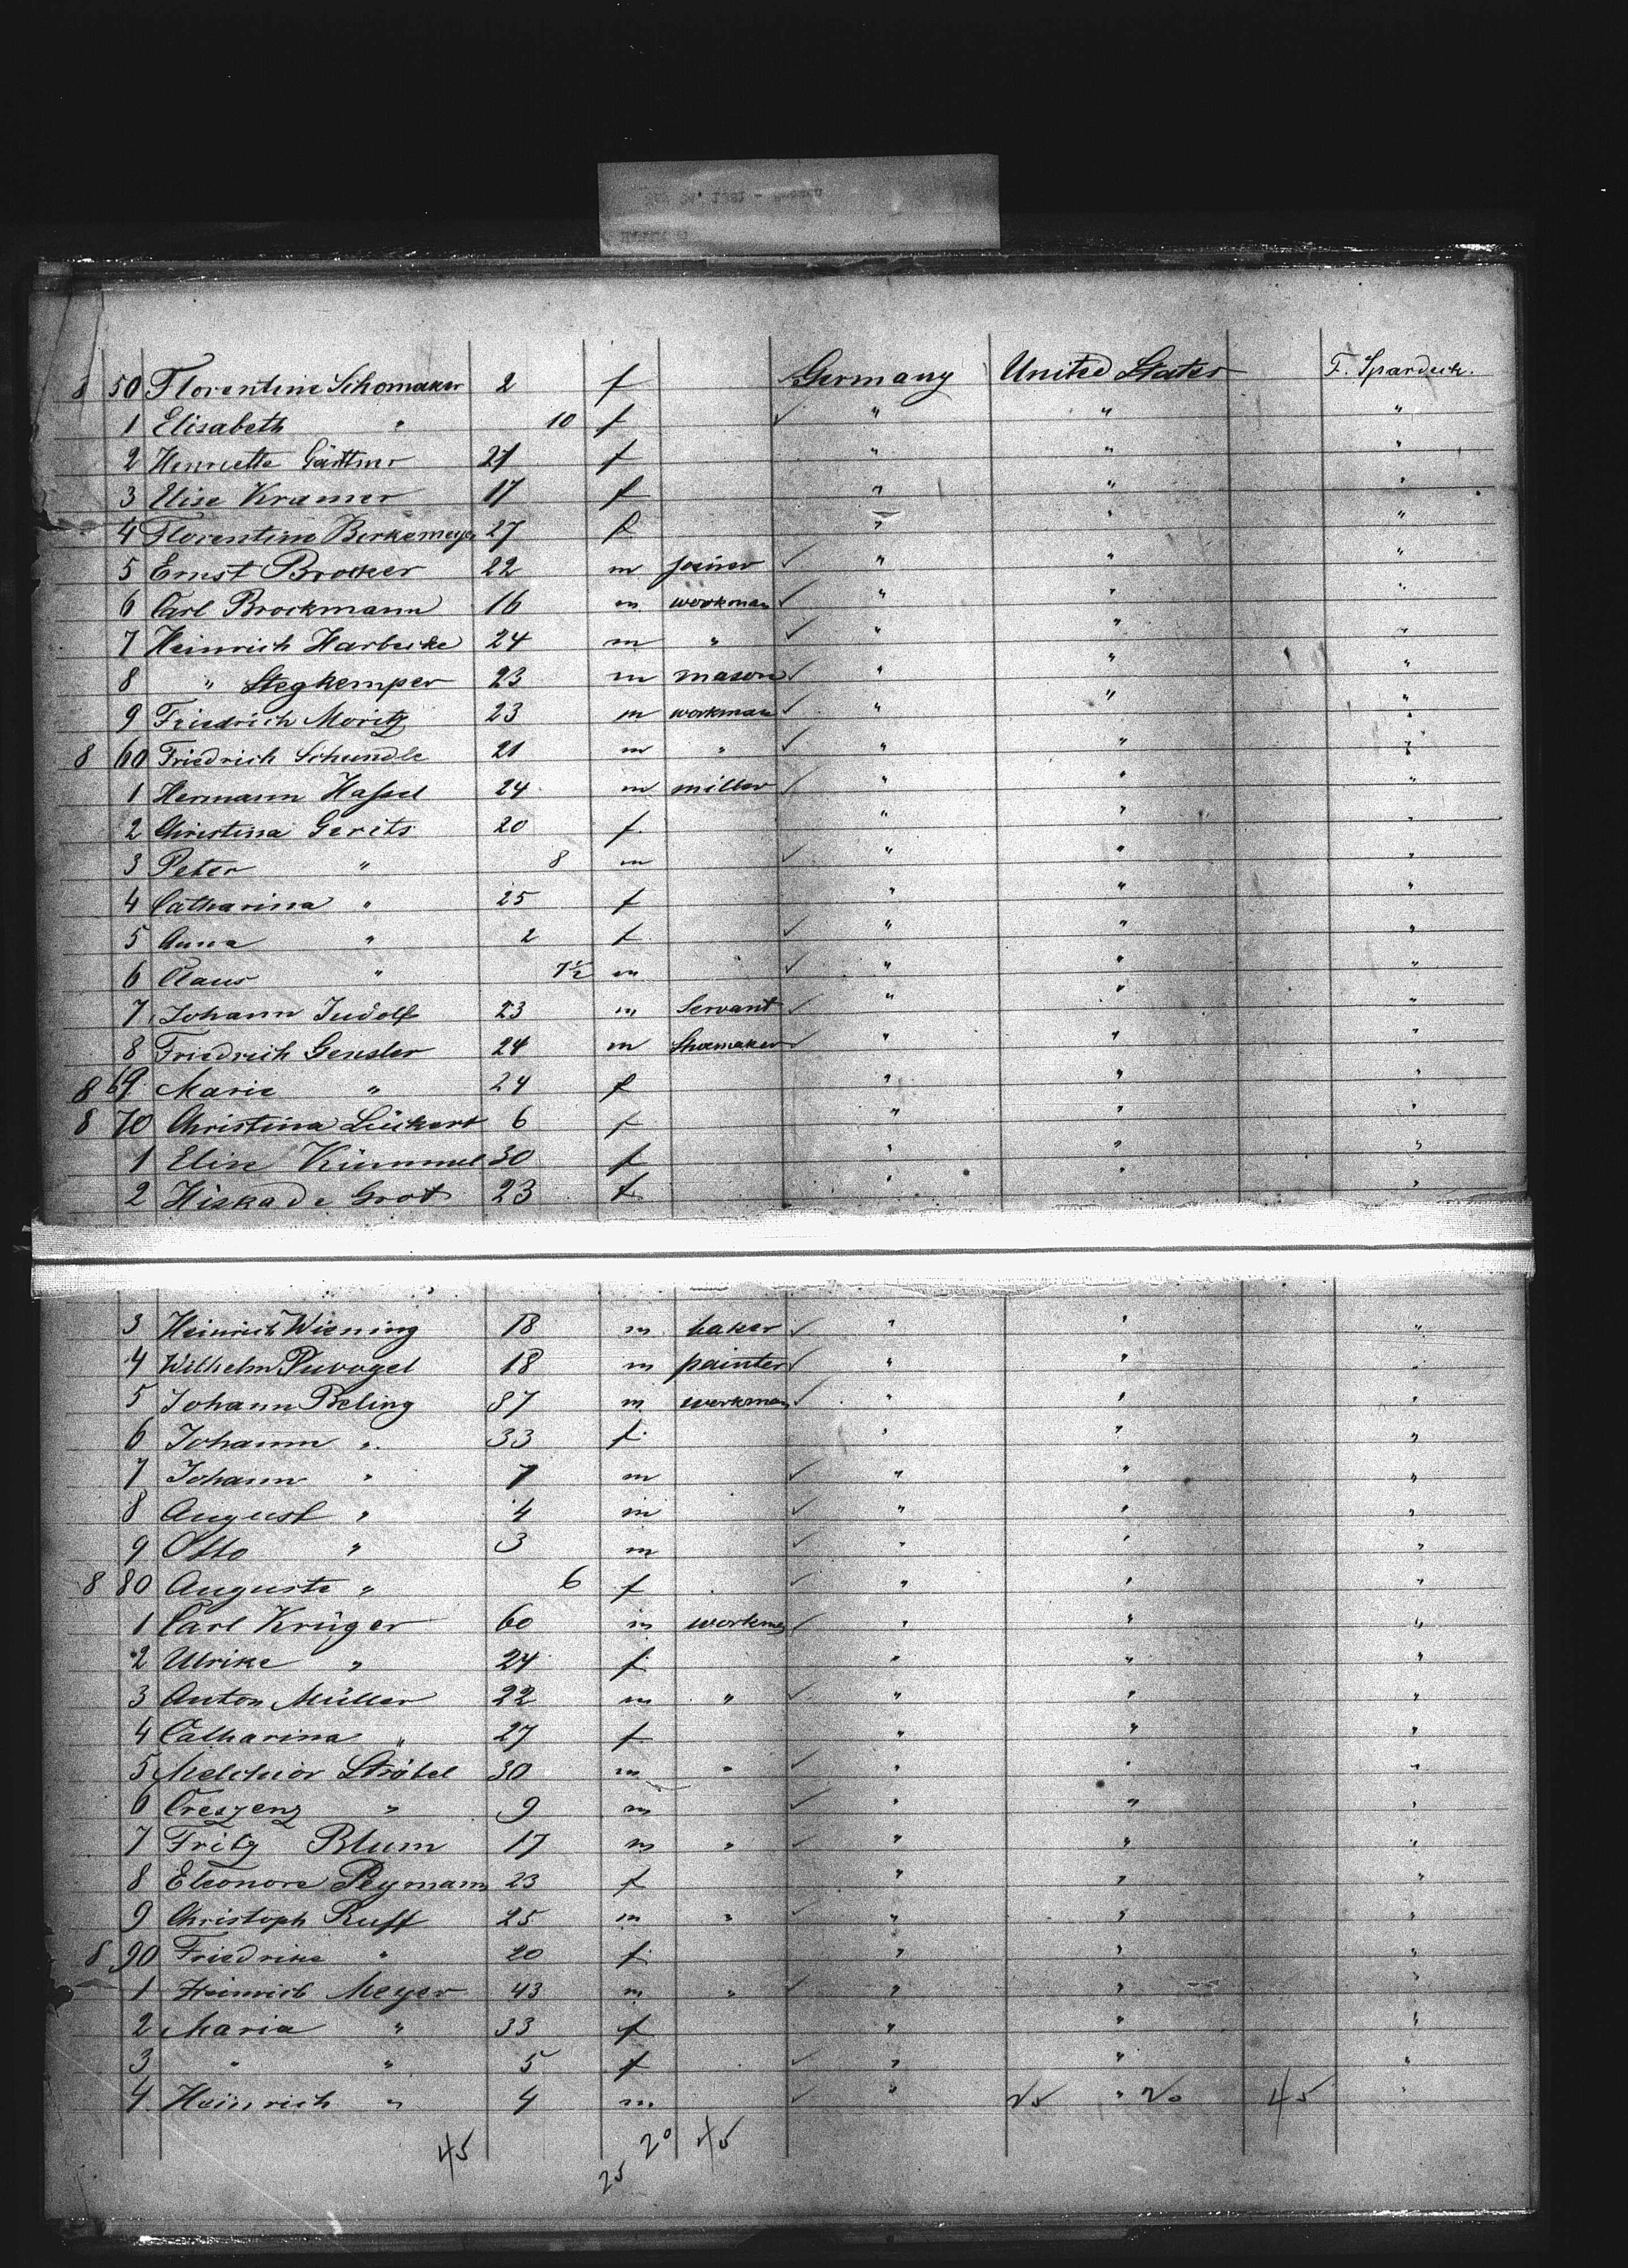 8 50 Florentine Schomaker 2 f Germany United States F. Spardeck.
1 Elisabeth " 10 f ✓ " " "
2 Henriette Gärttner 21 f " " "
3 Elise Kramer 17 f " " "
4 Florentine Berkemeyer 27 f " " "
5 Ernst Brocker 22 m joiner ✓ " " "
6 Carl Brockmann 16 m workman ✓ " " "
7 Heinrich Harbecke 24 m " ✓ " " "
8 " Stegkemper 23 m mason ✓ " " "
9 Friedrich Moritz 23 m workman ✓ " " "
8 60 Friedrich Schundle 21 m " ✓ " " "
1 Hermann Hassel 24 m miller ✓ " " "
2 Christina Gerits 20 f " " "
3 Peter " 8 m ✓ " " "
4 Catharina " 25 f " " "
5 Anna " 2 f ✓ " " "
6 Claus " 7½ m ✓ " " "
7 Johann Judolf 23 m Servant ✓ " " "
8 Friedrich Gensler 24 m Shoemaker ✓ " " "
8 69 Marie " 24 f " " "
8 70 Christina Lückert 6 f " " "
1 Elise Kümmel 30 f " " "
2 Hiska de Grot 23 f " " "
3 Heinrich Wiening 18 m baker ✓ " " "
4 Wilhelm Puvogel 18 m painter ✓ " " "
5 Johann Beling 37 m workman ✓ " " "
6 Johann " 33 f " " "
7 Johann " 7 m ✓ " " "
8 August " 4 m ✓ " " "
9 Otto " 3 m ✓ " " "
8 80 Auguste " 6 f ✓ " " "
1 Carl Krüger 60 m workman ✓ " " "
2 Ulrike " 24 f " " "
3 Anton Müller 22 m " ✓ " " "
4 Catharina " 27 f " " "
5 Melchior Ströbel 30 m " ✓ " " "
6 Creszenz " 9 m ✓ " " "
7 Fritz Blum 17 m " ✓ " " "
8 Eleonore Peymann 23 f " " "
9 Christoph Ruff 25 m " ✓ " " "
8 90 Friedrike " 20 f " " "
1 Heinrich Meyer 43 m " ✓ " " "
2 Maria " 33 f " " "
3 " " 5 f ✓ " " "
4 Heinrich " 4 m ✓ " 25 " 20 45 "
45 25 20 45